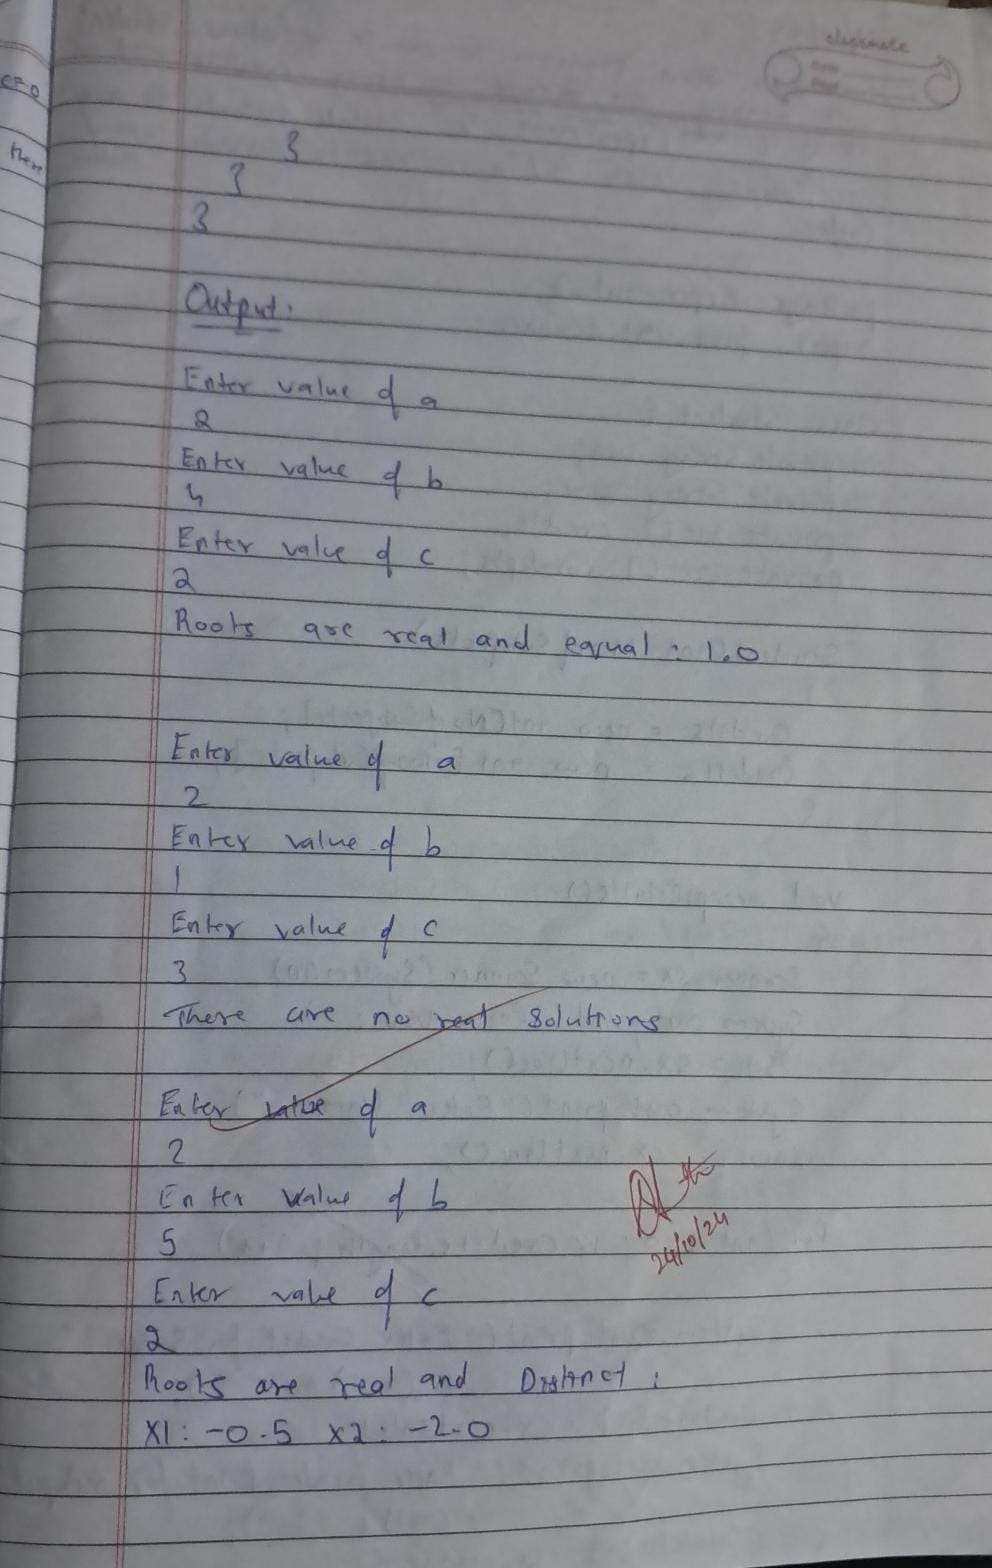 classmate
c=0
}
}
}
Output:
Enter value of a
2
Enter value of b
4
Enter value of c
2
Roots are real and equal : 1.0
Enter value of a
2
Enter value of b
1
Enter value of c
3
There are no real solutions
Enter value of a
2
Enter value of b
5
Enter value of c
2
Roots are real and Distinct :
X1 : -0.5 X2 : -2.0
24/10/24